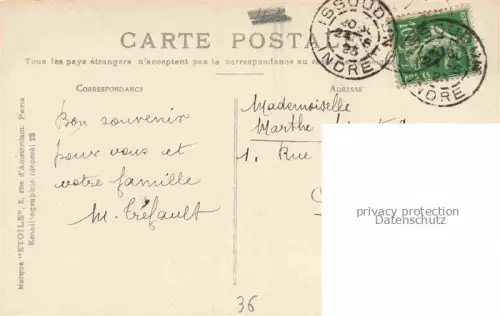 CARTE POSTA
Tous les pays étrangers n'acceptent pas la correspondance au
ISSOUDUN
INDRE
POSTES
INDRE
CORRESPONDANCE
ADRESSE
Bon souvenir
pour vous et
votre famille
M. Tréfault
Mademoiselle
Marthe
1. Rue
privacy protection
Datenschutz
36
Marque "ETOILE", 2, rue d'Amsterdam. Paris
Emaillographie (déposé) 23